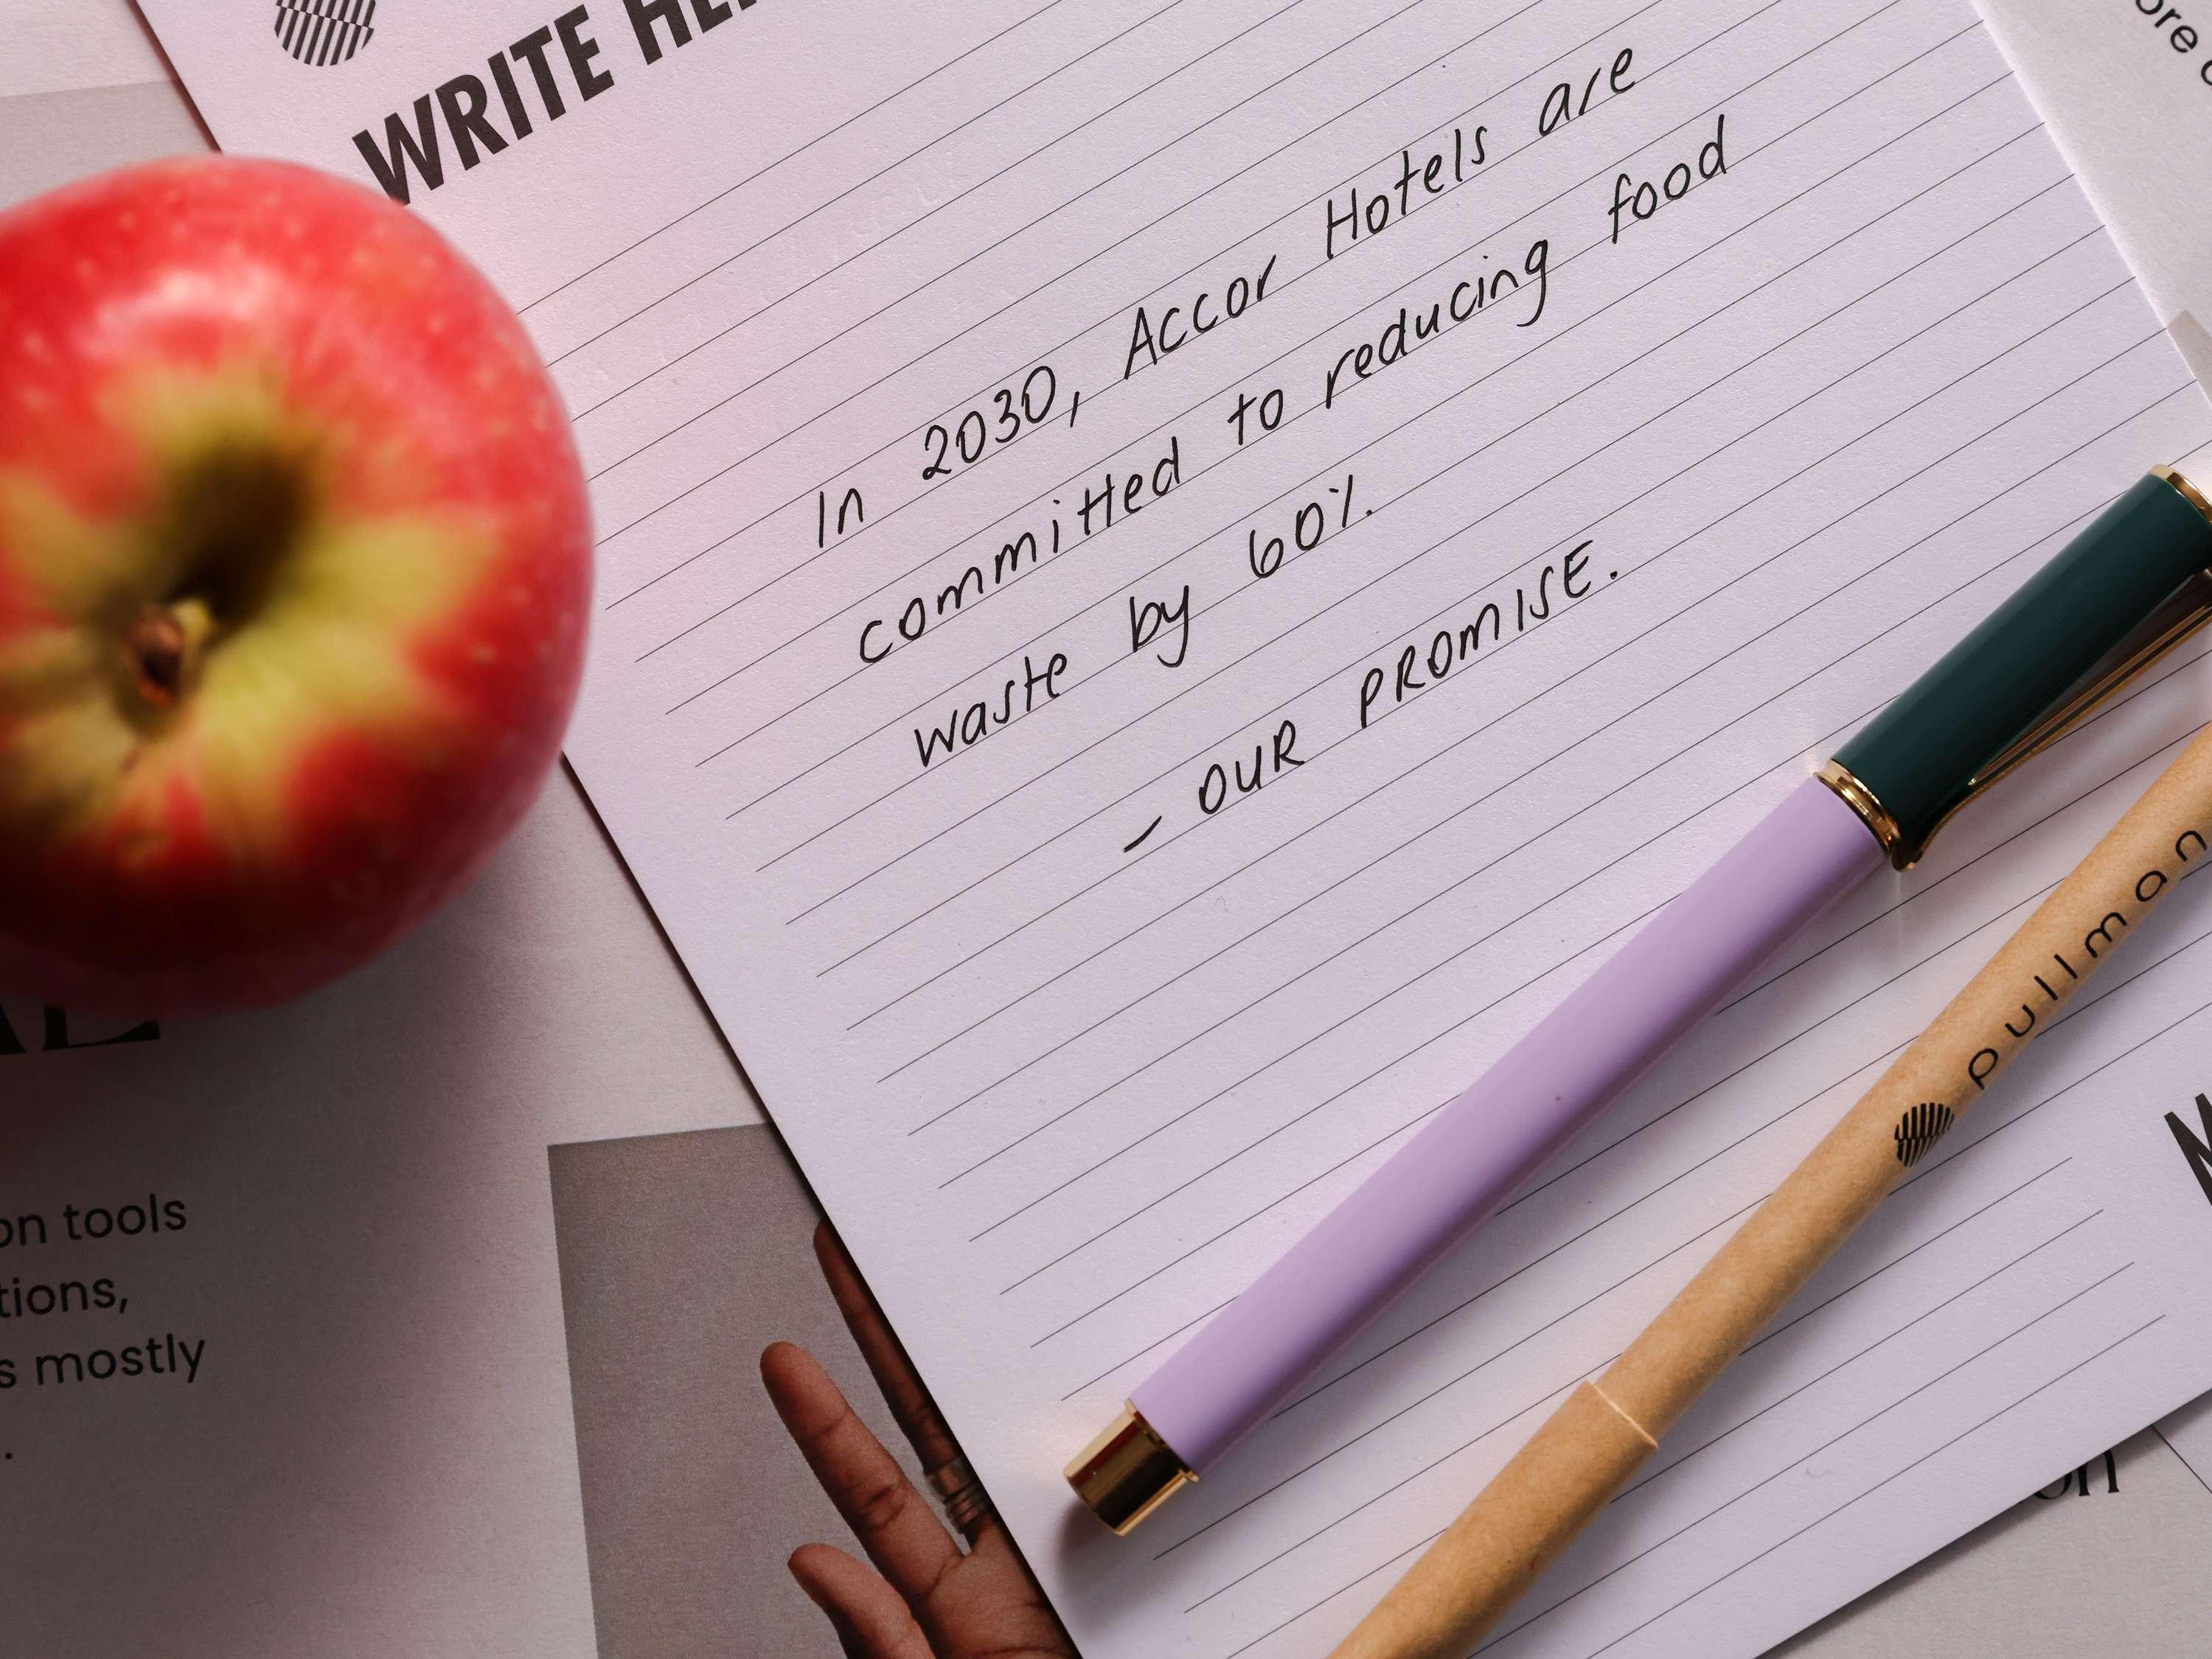 WRITE
In 2030, Accor Hotels are
committed to reducing food
waste by 60%.
- OUR PROMISE.
pullman
on tools
tions,
s mostly
.
on
ore